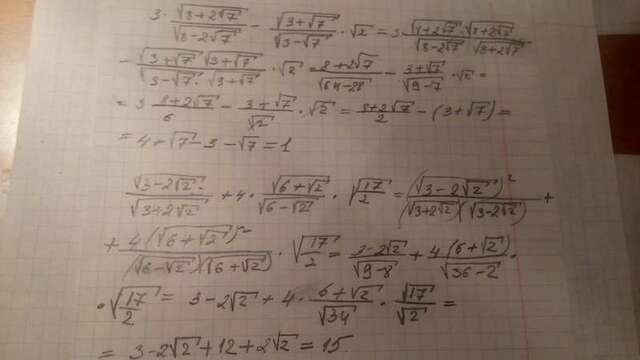 3 · √(8+2√7)/√(8-2√7) - √(3+√7)/√(3-√7) · √2 = 3 √(8+2√7) · √(8+2√7)/√(8-2√7) · √(8+2√7)
- √(3+√7) √(3+√7)/√(3-√7) · √(3+√7) · √2 = 8+2√7/√(64-28) - 3+√7/√(9-7) · √2 =
= 3 8+2√7/6 - 3+√7/√2 · √2 = 8+2√7/2 - (3+√7) =
= 4+√7-3-√7 = 1
√(3-2√2)/√(3+2√2) + 4 · √(6+√2)/√(6-√2) · √(17/2) = (√(3-2√2))²/(√(3+2√2))(√(3-2√2)) +
+ 4(√(6+√2))²/(√(6-√2))(√(6+√2)) · √(17/2) = 3-2√2/√(9-8) + 4(6+√2)/√(36-2) ·
· √(17/2) = 3-2√2 + 4 · 6+√2/√34 · √17/√2 =
= 3-2√2+12+2√2 = 15